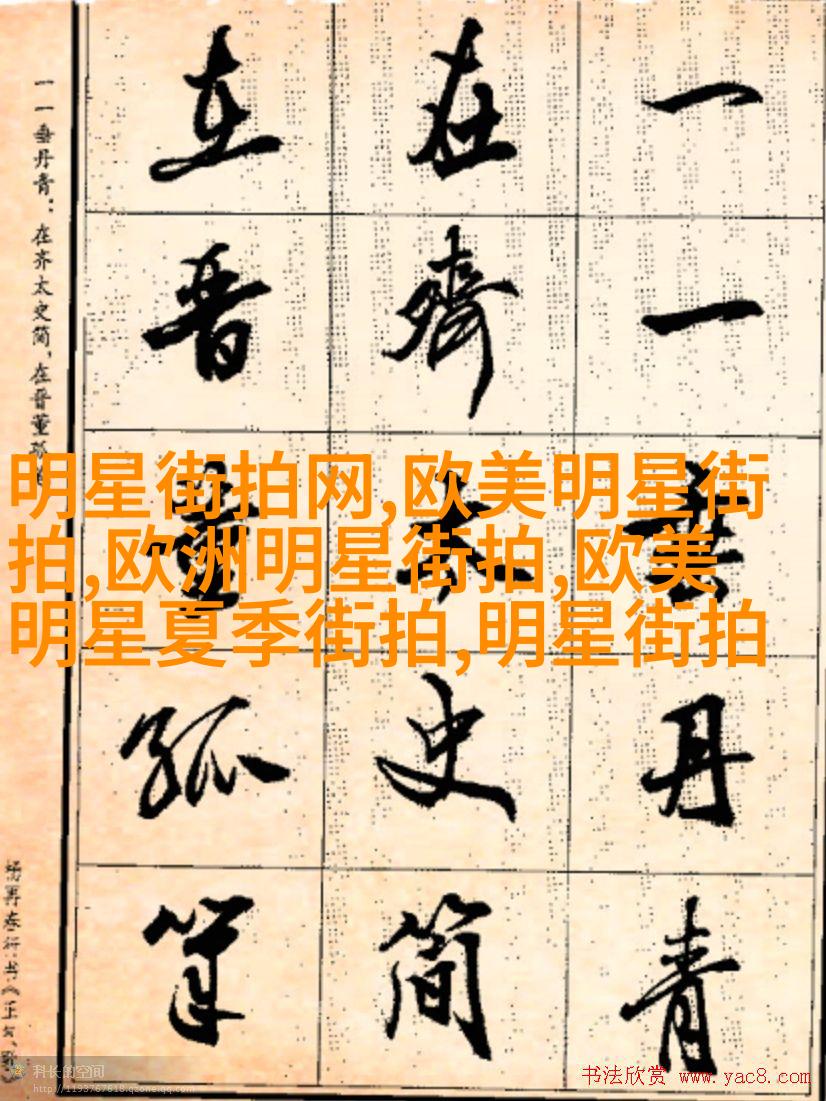 一一垂丹青
在齐太史简
在晋董狐筆
一一垂丹青：在齐太史简，在晋董狐
明星街拍网,欧美明星街
拍,欧洲明星街拍,欧美
明星夏季街拍,明星街拍
科长的空间
http://1193767618.qzone.qq.com
书法欣赏 www.yac8.com